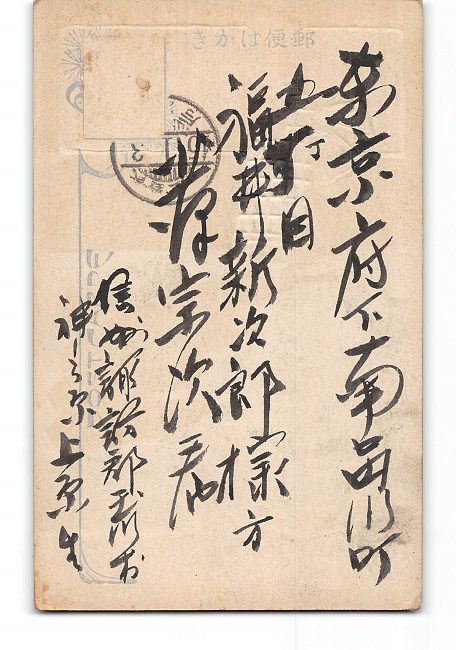 郵便はがき
東京府下南品川町
五丁目
福井新次郎家方
宗次君
信州諏訪郡玉川村
神之原上原生